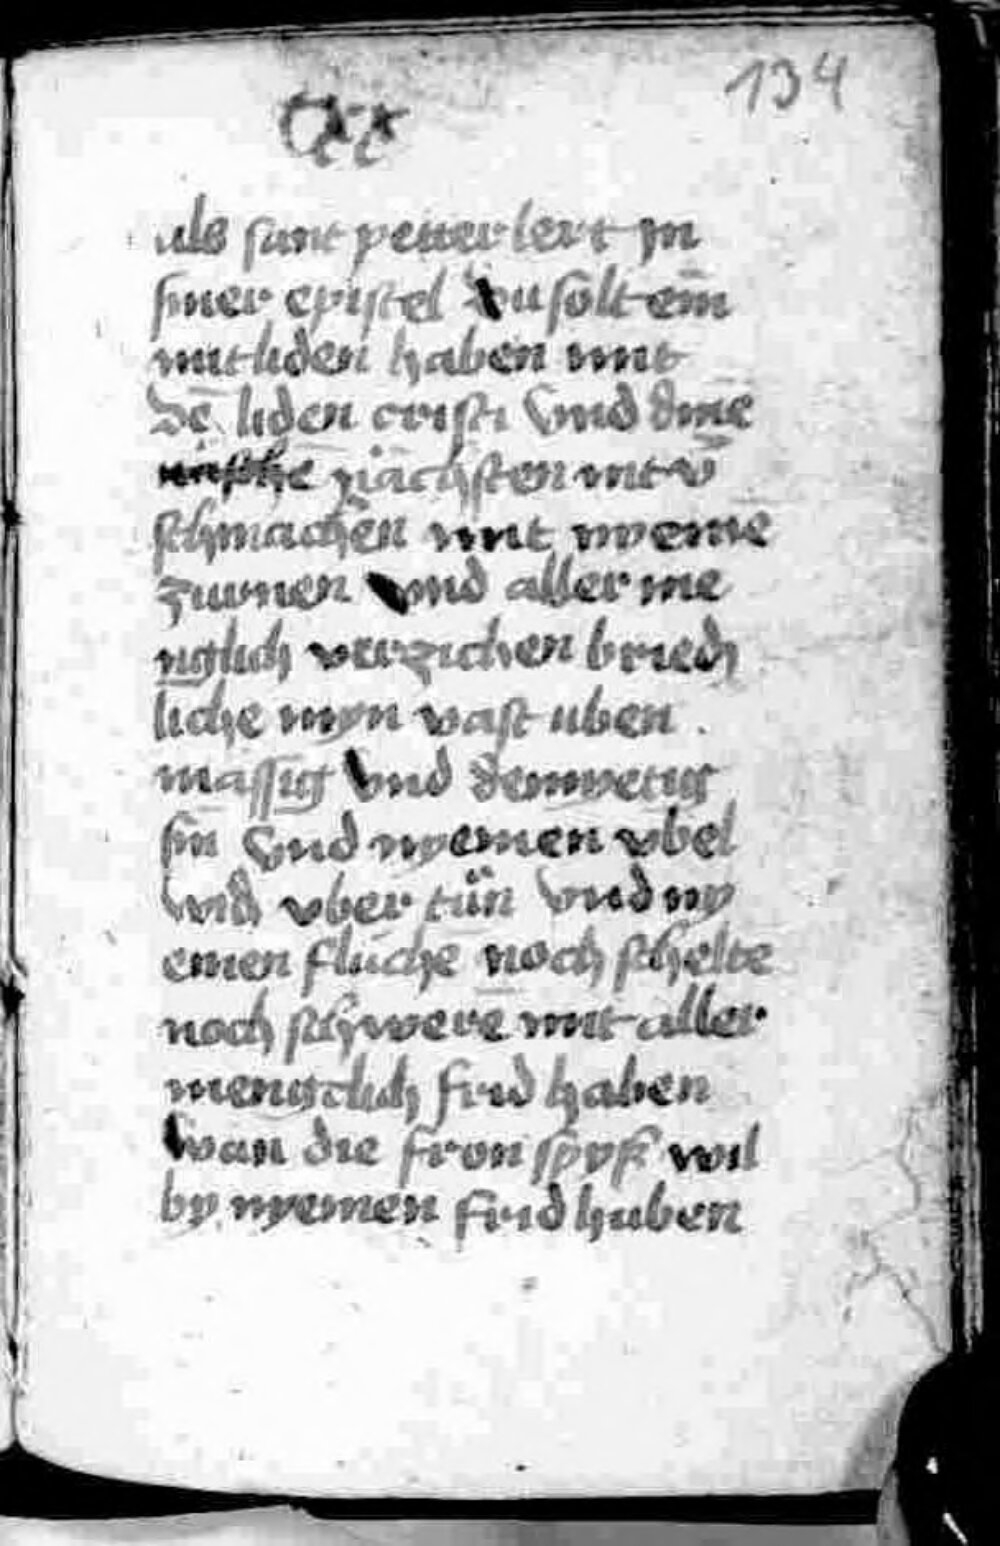 134
Cxx
als sant petter lert jn
siner epistel Du solt ein̄
mitliden haben mit
dē liden cristi Vnd dinē
nächsten nit v̄
schmachen mit nyeme
zurnen Vnd aller me
nglich verzichen
liche myn vast uben
mässig Vnd demuetig
sin Vnd nyemen vbel
Vnd vber tün Vnd ny
emen flůche noch schelte
noch schwerē mit aller
menigclich frid haben
Wan die fron spyß wil
by nyemen frid haben